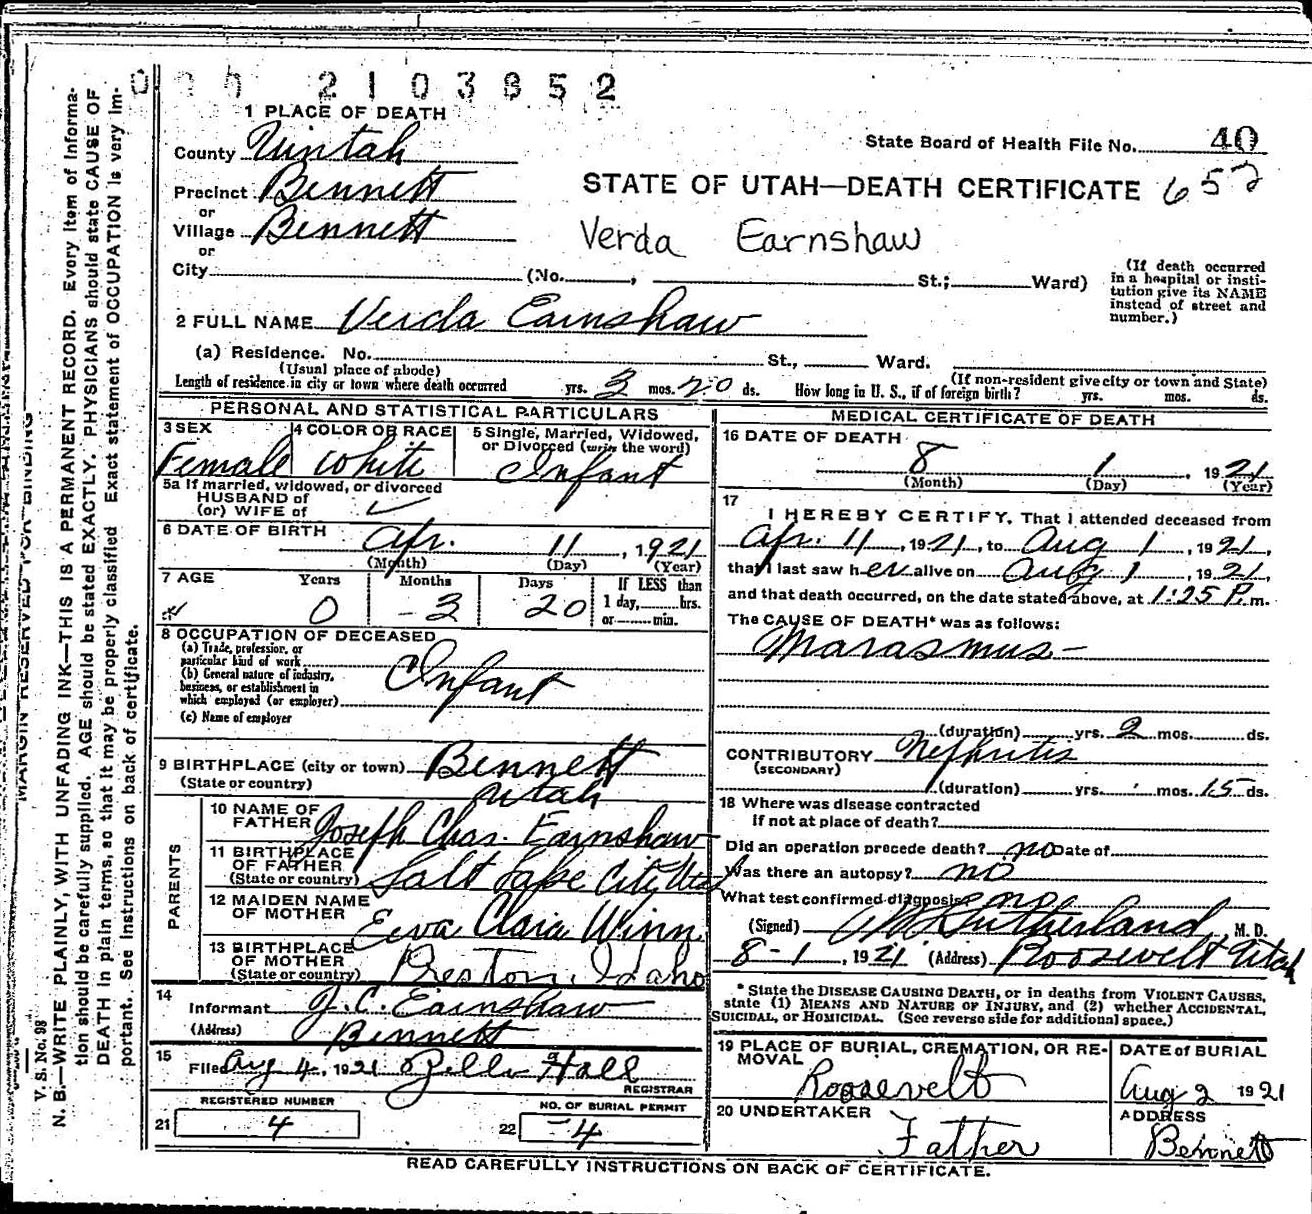 2103852
1 PLACE OF DEATH
State Board of Health File No. 40
County Uintah
652
Precinct Bennett
STATE OF UTAH—DEATH CERTIFICATE
or
Village Bennett
Verda Earnshaw
or
City (No. , St.; Ward)
(If death occurred in a hospital or institution give its NAME instead of street and number.)
2 FULL NAME Verda Earnshaw
(a) Residence. No. St., Ward.
(Usual place of abode) (If non-resident give city or town and State)
Length of residence in city or town where death occurred yrs. 3 mos. 20 ds. How long in U. S., if of foreign birth? yrs. mos. ds.
PERSONAL AND STATISTICAL PARTICULARS
3 SEX
Female
4 COLOR OR RACE
White
5 Single, Married, Widowed, or Divorced (write the word)
Infant
5a If married, widowed, or divorced
HUSBAND of
(or) WIFE of
6 DATE OF BIRTH
Apr. 11, 1921
(Month) (Day) (Year)
7 AGE Years Months Days If LESS than
0 3 20 1 day, hrs.
or min.
8 OCCUPATION OF DECEASED
(a) Trade, profession, or
particular kind of work
(b) General nature of industry,
business, or establishment in
which employed (or employer)
Infant
(c) Name of employer
9 BIRTHPLACE (city or town) Bennett
(State or country) Utah
PARENTS
10 NAME OF FATHER Joseph Chas. Earnshaw
11 BIRTHPLACE OF FATHER
(State or country) Salt Lake City Utah
12 MAIDEN NAME OF MOTHER Eva Clara Winn
13 BIRTHPLACE OF MOTHER
(State or country) Preston, Idaho
14
Informant J. C. Earnshaw
(Address) Bennett
15
Filed Aug 4, 1921 Hall
REGISTRAR
REGISTERED NUMBER
21 4
NO. OF BURIAL PERMIT
22 4
MEDICAL CERTIFICATE OF DEATH
16 DATE OF DEATH
8 1, 1921
(Month) (Day) (Year)
17
I HEREBY CERTIFY, That I attended deceased from
Apr. 11, 1921, to Aug 1, 1921,
that I last saw her alive on Aug 1, 1921,
and that death occurred, on the date stated above, at 1:25 P. m.
The CAUSE OF DEATH* was as follows:
Marasmus
(duration) yrs. 2 mos. ds.
CONTRIBUTORY Nephritis
(SECONDARY)
(duration) yrs. mos. 15 ds.
18 Where was disease contracted
if not at place of death?
Did an operation precede death? no Date of
Was there an autopsy? no
What test confirmed diagnosis no
(Signed) Sutherland, M. D.
8-1, 1921 (Address) Roosevelt Utah
* State the DISEASE CAUSING DEATH, or in deaths from VIOLENT CAUSES,
state (1) MEANS AND NATURE OF INJURY, and (2) whether ACCIDENTAL,
SUICIDAL, or HOMICIDAL. (See reverse side for additional space.)
19 PLACE OF BURIAL, CREMATION, OR REMOVAL
Roosevelt
DATE of BURIAL
Aug 2 1921
20 UNDERTAKER
Father
ADDRESS
Bennett
READ CAREFULLY INSTRUCTIONS ON BACK OF CERTIFICATE.
MARGIN RESERVED FOR BINDING
V. S. No. 98
N. B.—WRITE PLAINLY, WITH UNFADING INK—THIS IS A PERMANENT RECORD. Every item of informa-
tion should be carefully supplied. AGE should be stated EXACTLY. PHYSICIANS should state CAUSE OF
DEATH in plain terms, so that it may be properly classified. Exact statement of OCCUPATION is very im-
portant. See instructions on back of certificate.